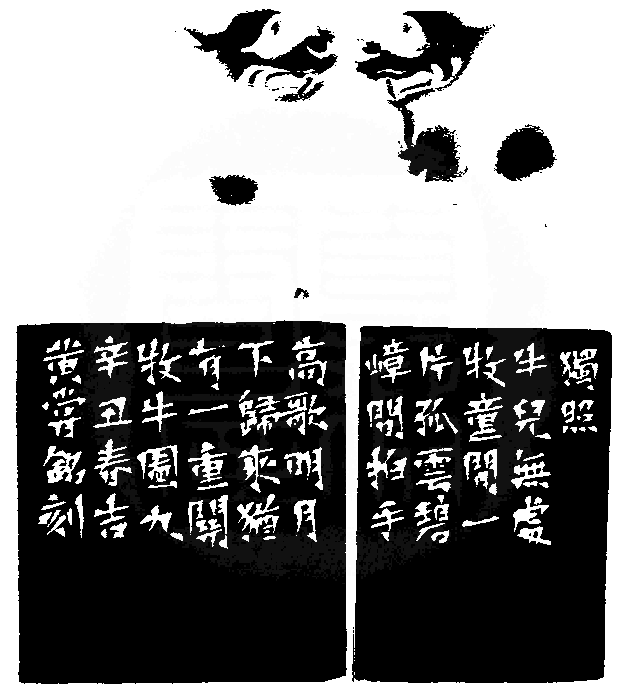 獨照
牛兒無處
牧童閒一
片孤雲碧
嶂間拍手
高歌明月
下歸來猶
有一重關
牧牛圖九
辛丑春吉
黃嘗銘刻